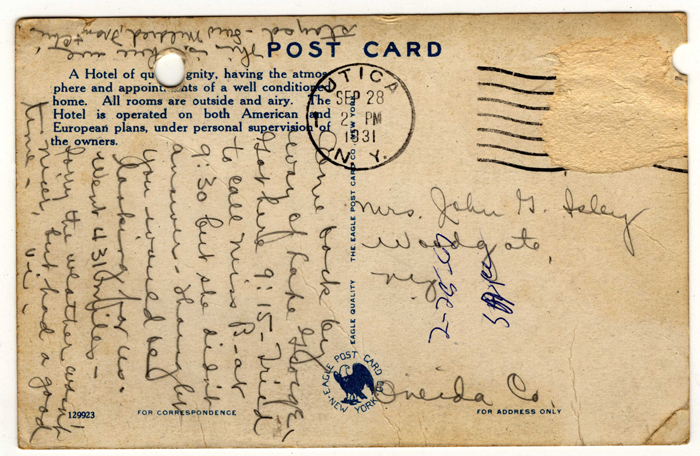 POST CARD
A Hotel of qu gnity, having the atmos
phere and appoint nts of a well conditioned
home. All rooms are outside and airy. The
Hotel is operated on both American and
European plans, under personal supervision of
the owners.
This is where we
stayed - saw Mildred,
Came back by
way of Lake George,
Got here 9:15 - Tried
to call Miss B - at
9:30 but she didn't
answer - Thought
you would be
looking for us.
Went 431 miles -
Sorry the weather wasn't
nicer, but had a good
time.
Vi
UTICA
SEP 28
2 PM
1931
N.Y.
Mrs. John G. Isley
Woodgate,
N.Y.
Oneida Co.
2-25-
EAGLE QUALITY THE EAGLE POST CARD CO. NEW YORK
EAGLE POST CARD CO.
NEW YORK
129923
FOR CORRESPONDENCE
FOR ADDRESS ONLY